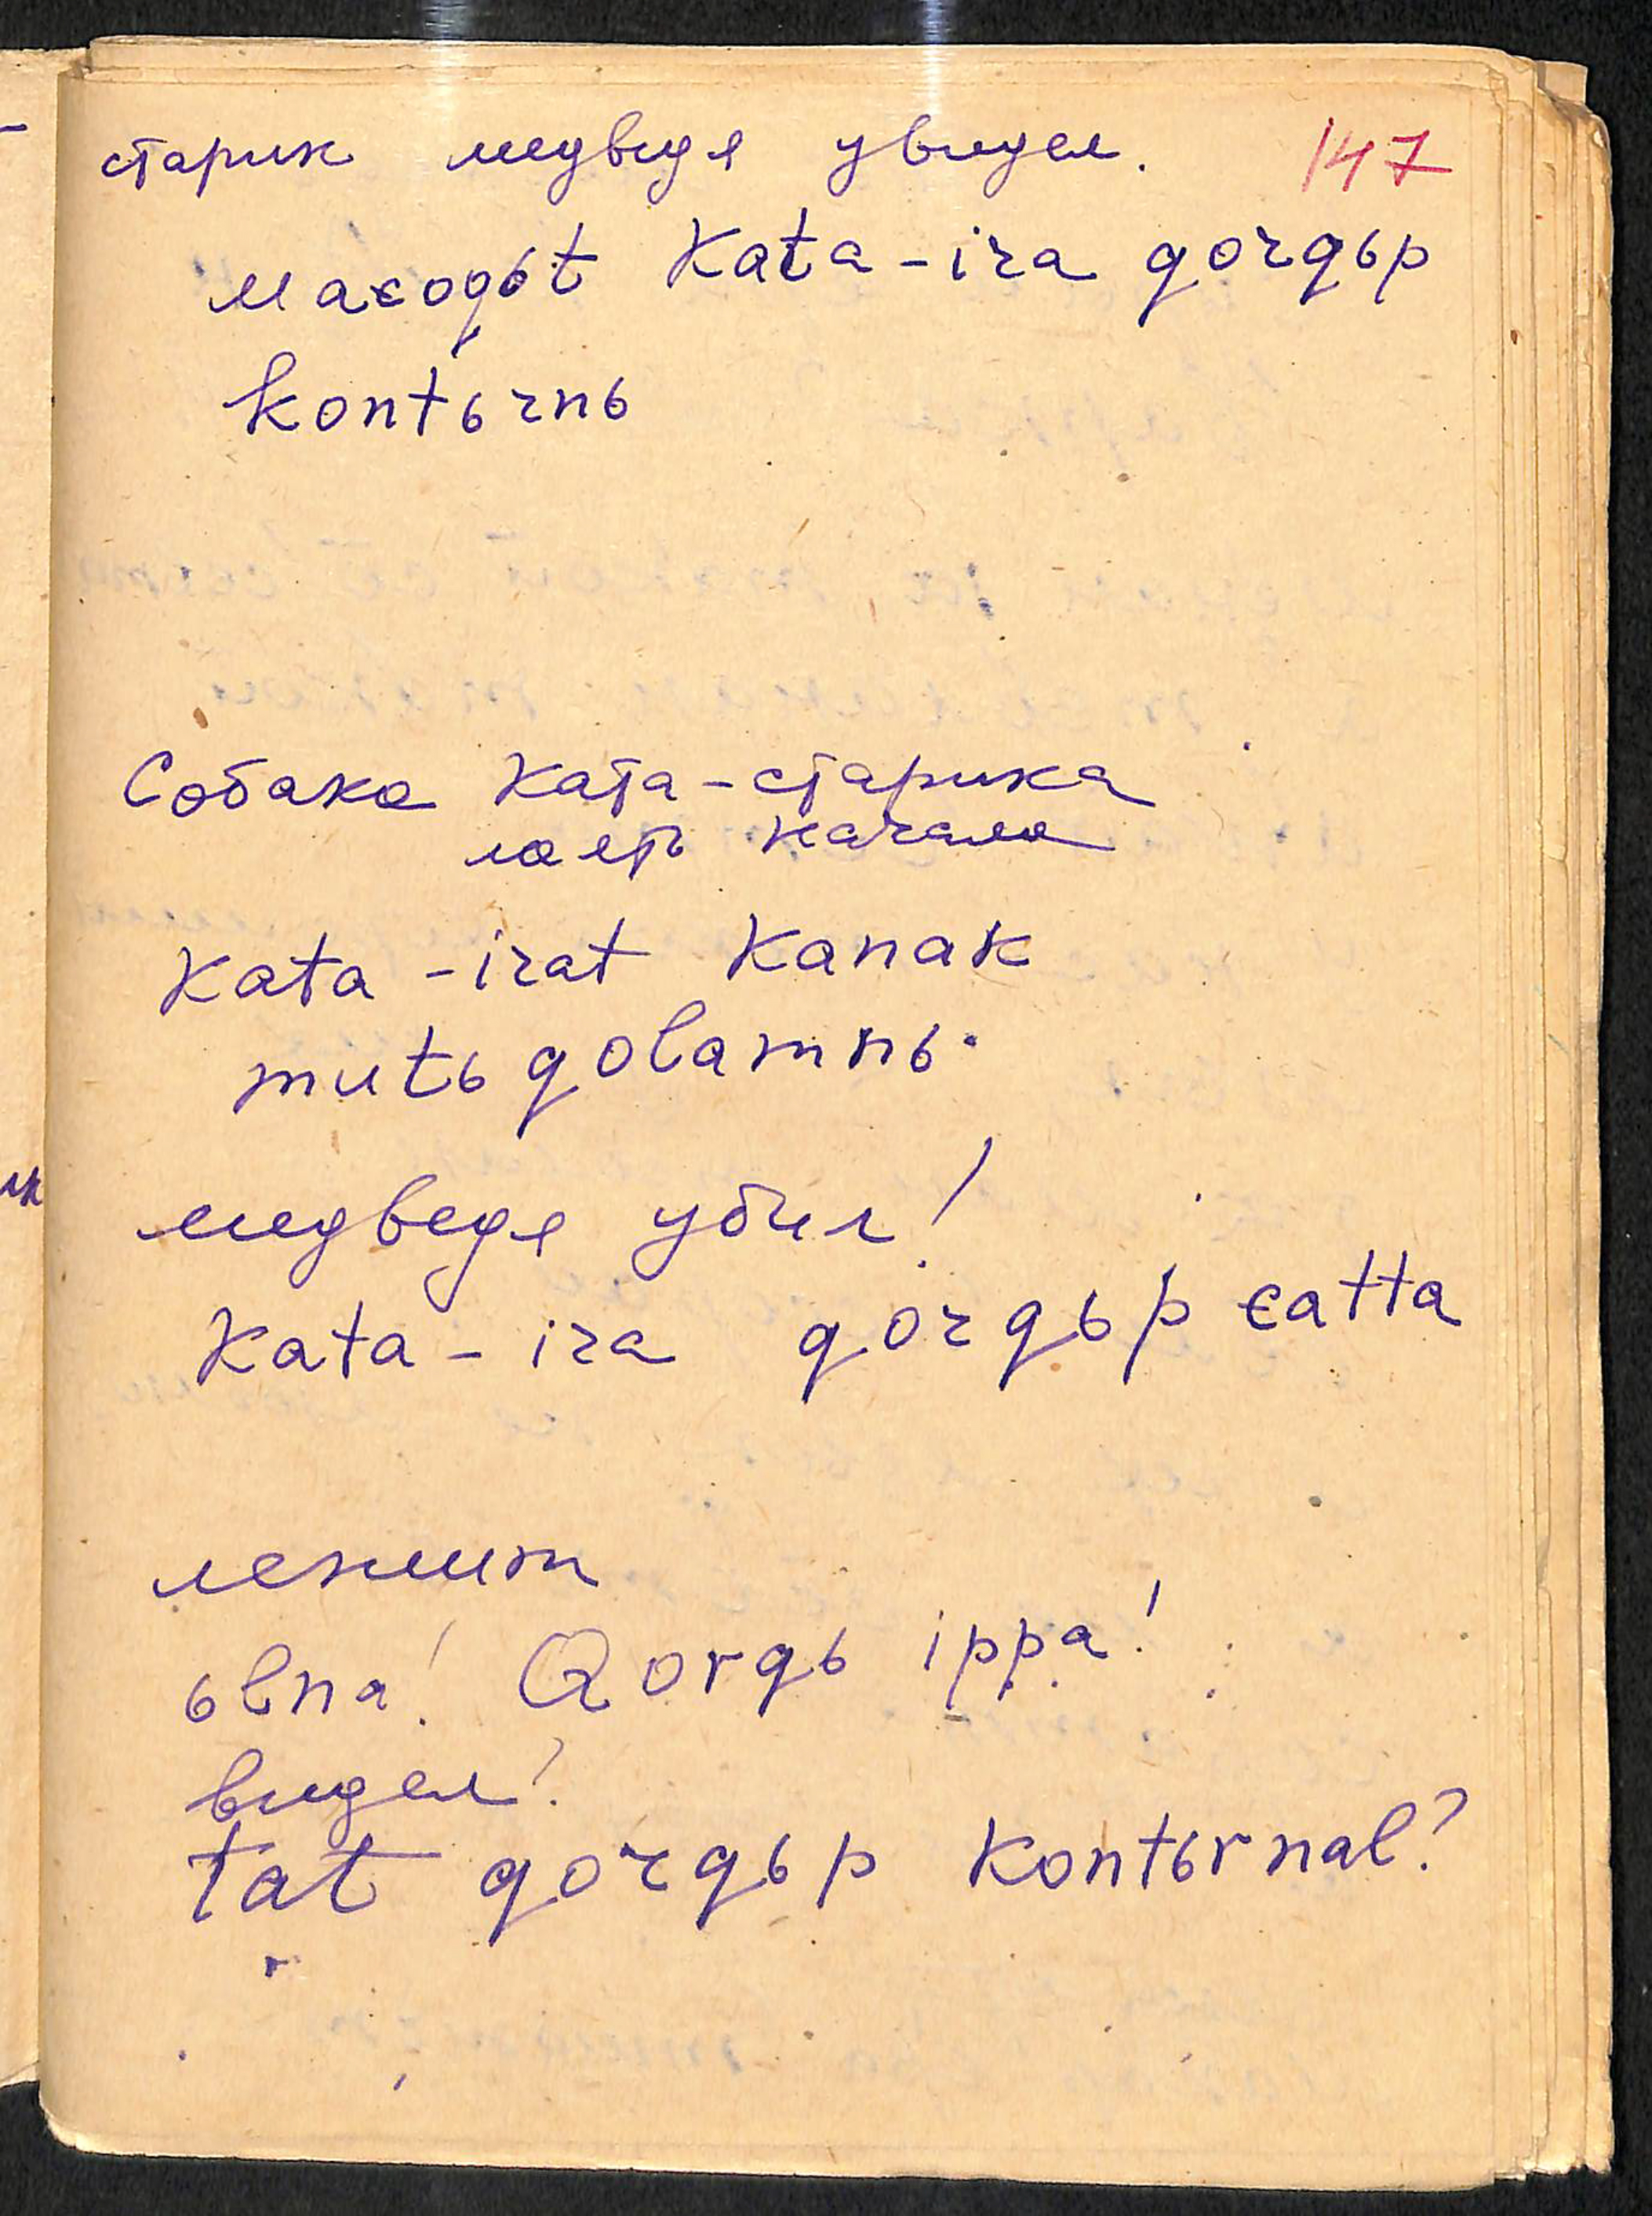 старик медведя увидел. 147
maɛoqьt Kata-ira qorqьp
kontьrnь
Собака Ката-старика
лаеть начала
Kata-irat Kanak
mutь qolamnь.
медведя убил!
Kata-ira qorqьp ɛatta
лежит
ьlna! Qorqь ippa!
видел?
tat qorqьp Kontьrnal?